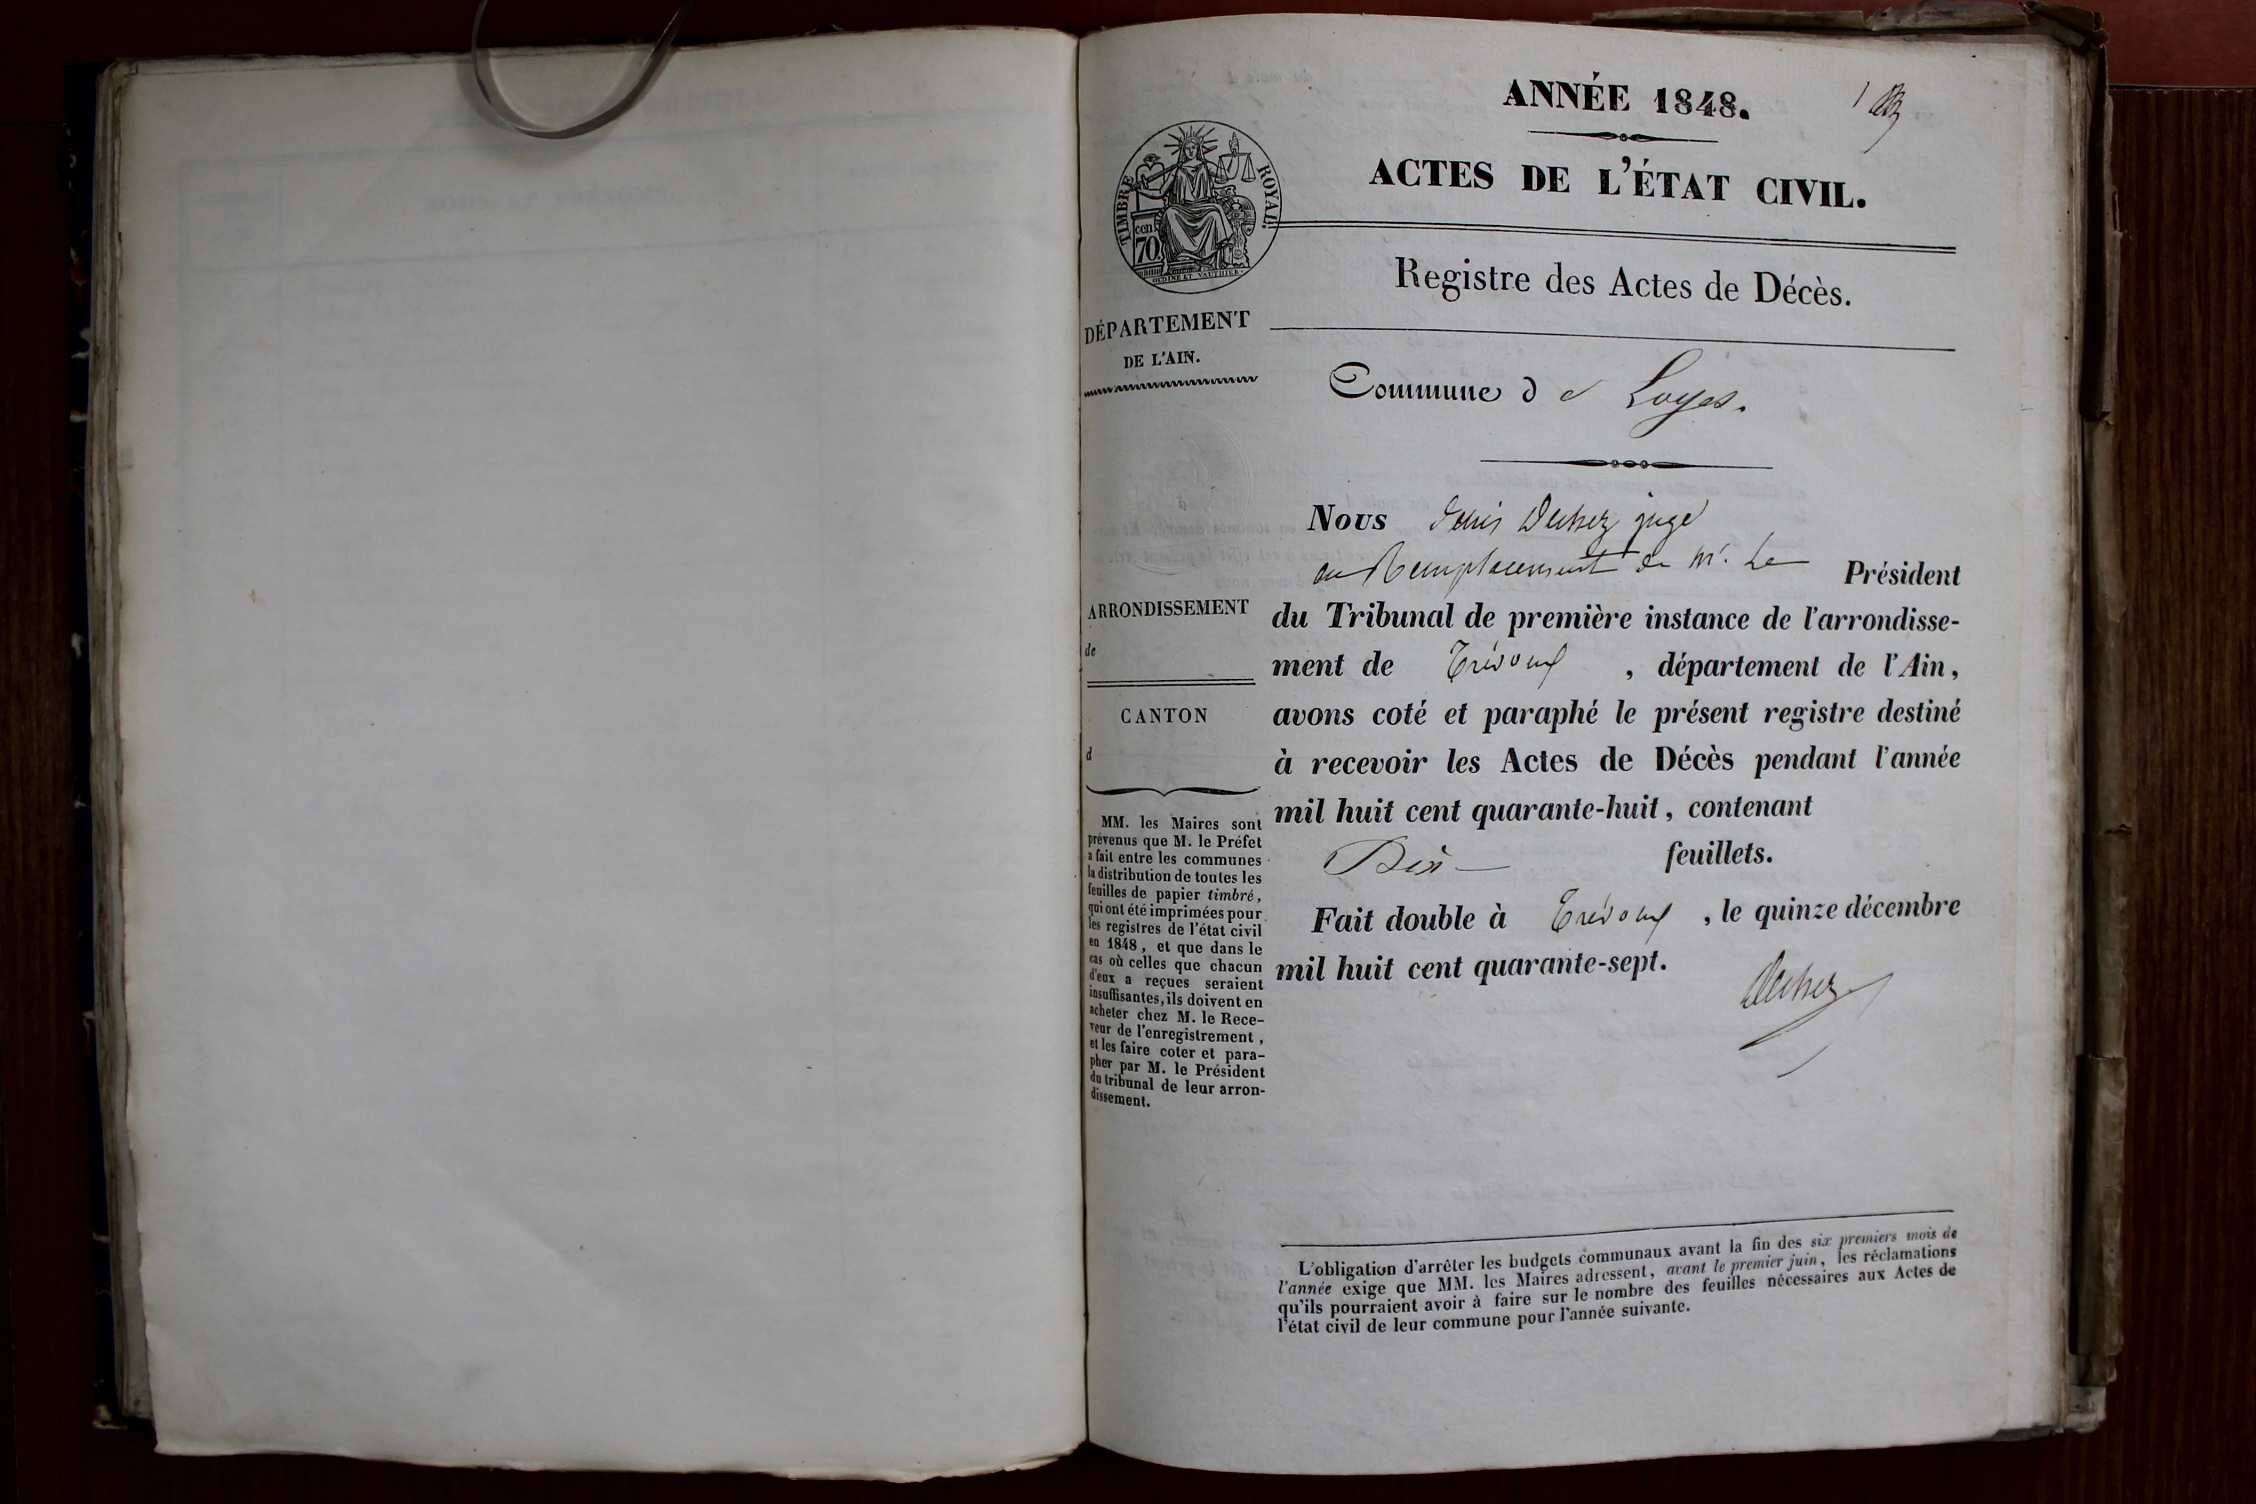 ANNÉE 1848.
1
ACTES DE L'ÉTAT CIVIL.
TIMBRE ROYAL.
cen.
70.
Registre des Actes de Décès.
DÉPARTEMENT
DE L'AIN.
Commune d e Loyes.
Nous Denis juge
en Remplacement de Mr. Le Président
du Tribunal de première instance de l'arrondisse-
ment de Trévoux, département de l'Ain,
avons coté et paraphé le présent registre destiné
à recevoir les Actes de Décès pendant l'année
mil huit cent quarante-huit, contenant
Dix feuillets.
Fait double à Trévoux, le quinze décembre
mil huit cent quarante-sept.
ARRONDISSEMENT
de
CANTON
d
MM. les Maires sont
prévenus que M. le Préfet
a fait entre les communes
la distribution de toutes les
feuilles de papier timbré,
qui ont été imprimées pour
les registres de l'état civil
en 1848, et que dans le
cas où celles que chacun
d'eux a reçues seraient
insuffisantes, ils doivent en
acheter chez M. le Rece-
veur de l'enregistrement,
et les faire coter et para-
pher par M. le Président
du tribunal de leur arron-
dissement.
L'obligation d'arrêter les budgets communaux avant la fin des six premiers mois de
l'année exige que MM. les Maires adressent, avant le premier juin, les réclamations
qu'ils pourraient avoir à faire sur le nombre des feuilles nécessaires aux Actes de
l'état civil de leur commune pour l'année suivante.